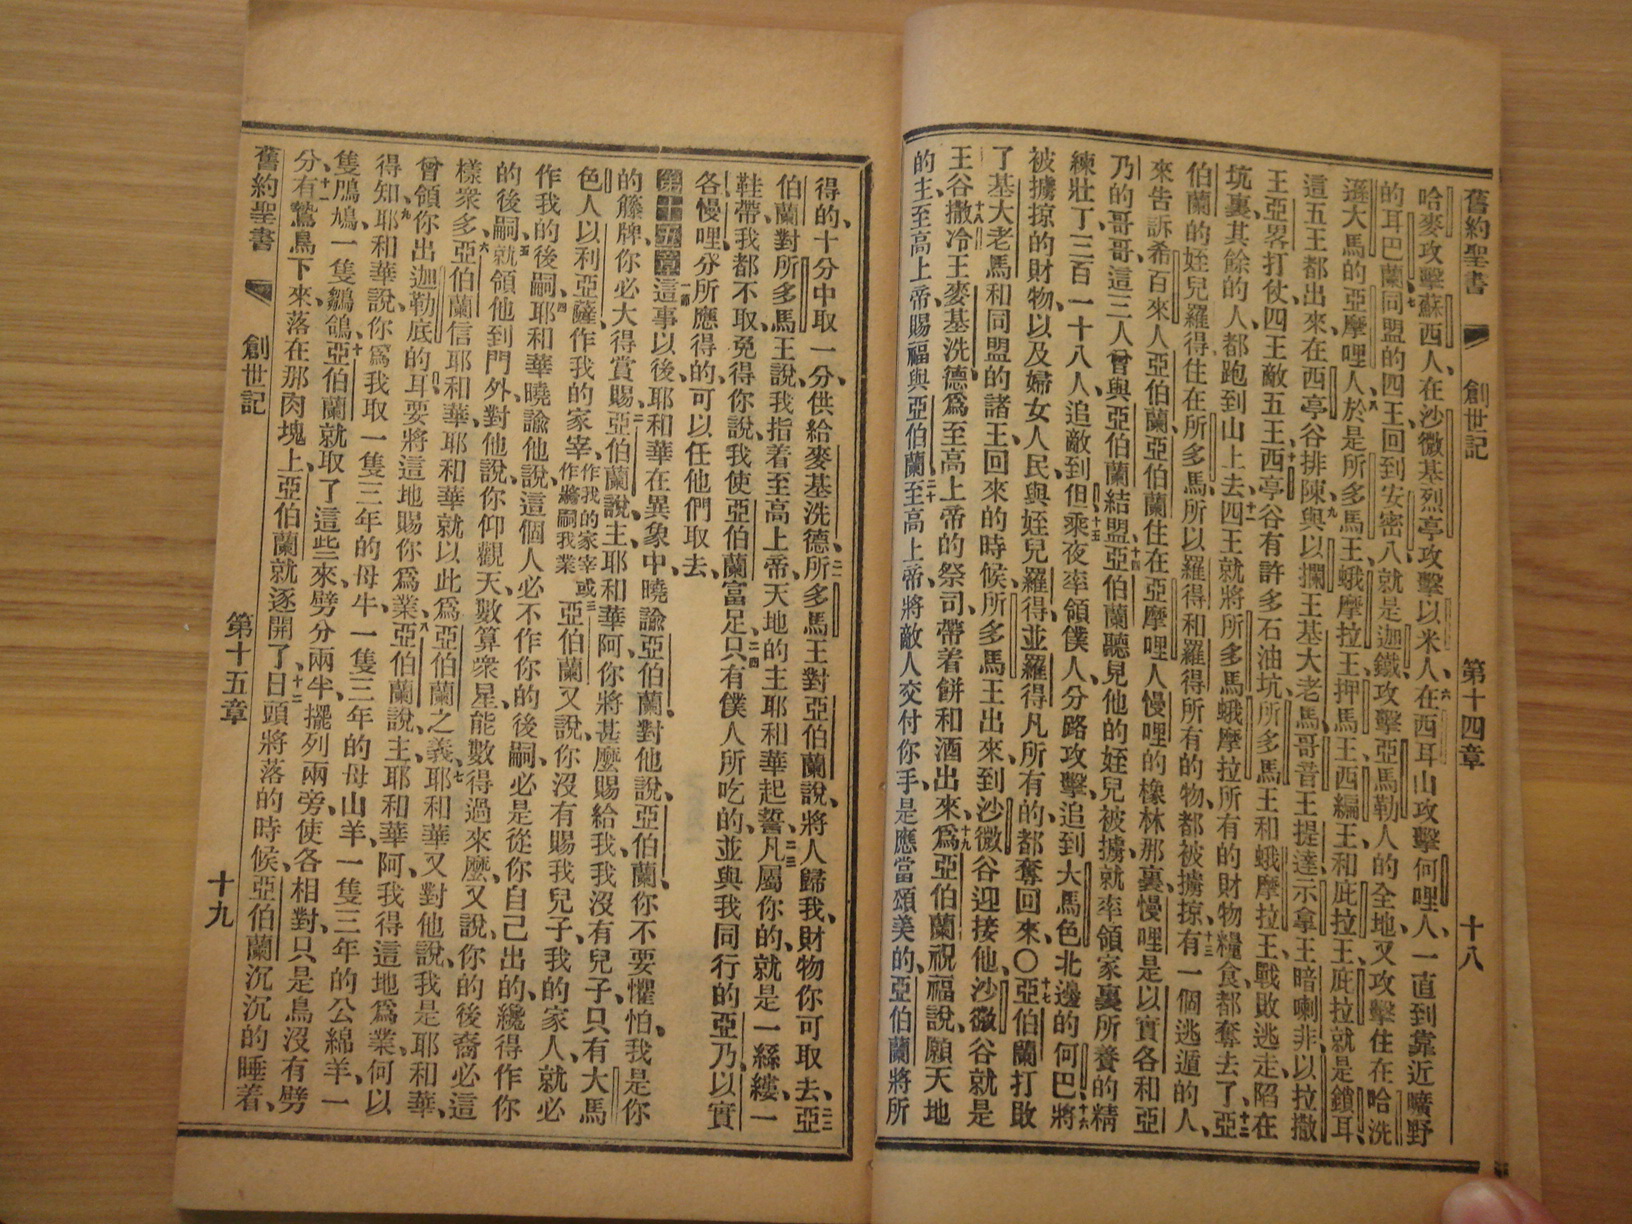 舊約聖書 創世記 第十四章 十八
哈麥攻擊蘇西人、在沙微基烈亭攻擊以米人、六在西耳山攻擊何哩人、一直到靠近曠野
的耳巴蘭、七同盟的四王回到安密八、就是迦鐵、攻擊亞馬勒人的全地、又攻擊住在哈洗
遜大馬的亞摩哩人、八於是所多馬王、蛾摩拉王、押馬王、西編王、和庇拉王、庇拉就是鎖耳、
這五王都出來、在西亭谷排陳、九與以攔王基大老馬、哥音王提達、示拿王暗喇非、以拉撒
王亞畧打仗、四王敵五王、十西亭谷有許多石油坑、所多馬王和蛾摩拉王、戰敗逃走、陷在
坑裏、其餘的人、都跑到山上去、十一四王就將所多馬蛾摩拉所有的財物糧食、都奪去了、十二亞
伯蘭的姪兒羅得、住在所多馬、所以羅得和羅得所有的物、都被擄掠、十三有一個逃遁的人、
來告訴希百來人亞伯蘭、亞伯蘭住在亞摩哩人慢哩的橡林那裏、慢哩是以實各和亞
乃的哥哥、這三人曾與亞伯蘭結盟、十四亞伯蘭聽見他的姪兒被擄、就率領家裏所養的精
練壯丁三百一十八人、追敵到但、十五乘夜率領僕人、分路攻擊、追到大馬色北邊的何巴、十六將
被擄掠的財物、以及婦女人民、與姪兒羅得、並羅得凡所有的、都奪回來、〇十七亞伯蘭打敗
了基大老馬和同盟的諸王、回來的時候、所多馬王出來、到沙微谷迎接他、沙微谷就是
王谷、十八撒冷王麥基洗德、爲至高上帝的祭司、帶着餅和酒出來、十九爲亞伯蘭祝福說、願天地
的主至高上帝、賜福與亞伯蘭、二十至高上帝、將敵人交付你手、是應當頌美的、亞伯蘭將所
得的、十分中取一分、供給麥基洗德、二一所多馬王對亞伯蘭說、將人歸我、財物你可取去、二二亞
伯蘭對所多馬王說、我指着至高上帝、天地的主耶和華起誓、二三凡屬你的、就是一絲縷、一
鞋帶、我都不取、免得你說、我使亞伯蘭富足、二四只有僕人所吃的、並與我同行的亞乃、以實
各、慢哩、分所應得的、可以任他們取去、
第十五章 一節這事以後、耶和華在異象中、曉諭亞伯蘭、對他說、亞伯蘭、你不要懼怕、我是你
的籐牌、你必大得賞賜、二亞伯蘭說、主耶和華阿、你將甚麽賜給我、我沒有兒子、只有大馬
色人以利亞薩、作我的家宰、作我的家宰或作將嗣我業三亞伯蘭又說、你沒有賜我兒子、我的家人、就必
作我的後嗣、四耶和華曉諭他說、這個人必不作你的後嗣、必是從你自己出的、纔得作你
的後嗣、五就領他到門外、對他說、你仰觀天、數算衆星、能數得過來麽、又說、你的後裔必這
樣衆多、六亞伯蘭信耶和華、耶和華就以此爲亞伯蘭之義、七耶和華又對他說、我是耶和華、
曾領你出迦勒底的耳、要將這地賜你爲業、八亞伯蘭說、主耶和華阿、我得這地爲業、何以
得知、九耶和華說、你爲我取一隻三年的母牛、一隻三年的母山羊、一隻三年的公綿羊、一
隻鳲鳩、一隻鶵鴿、十亞伯蘭就取了這些來、劈分兩半、擺列兩旁、使各相對、只是鳥沒有劈
分、十一有鷙鳥下來、落在那肉塊上、亞伯蘭就逐開了、十二日頭將落的時候、亞伯蘭沉沉的睡着、
舊約聖書 創世記 第十五章 十九